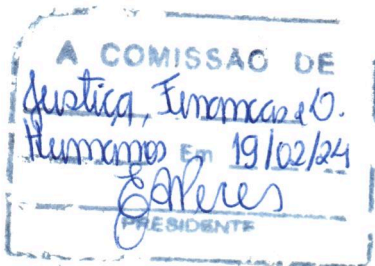 A COMISSAO DE
Justiça, Finanças e D.
Humanos Em 19/02/24
PRESIDENTE